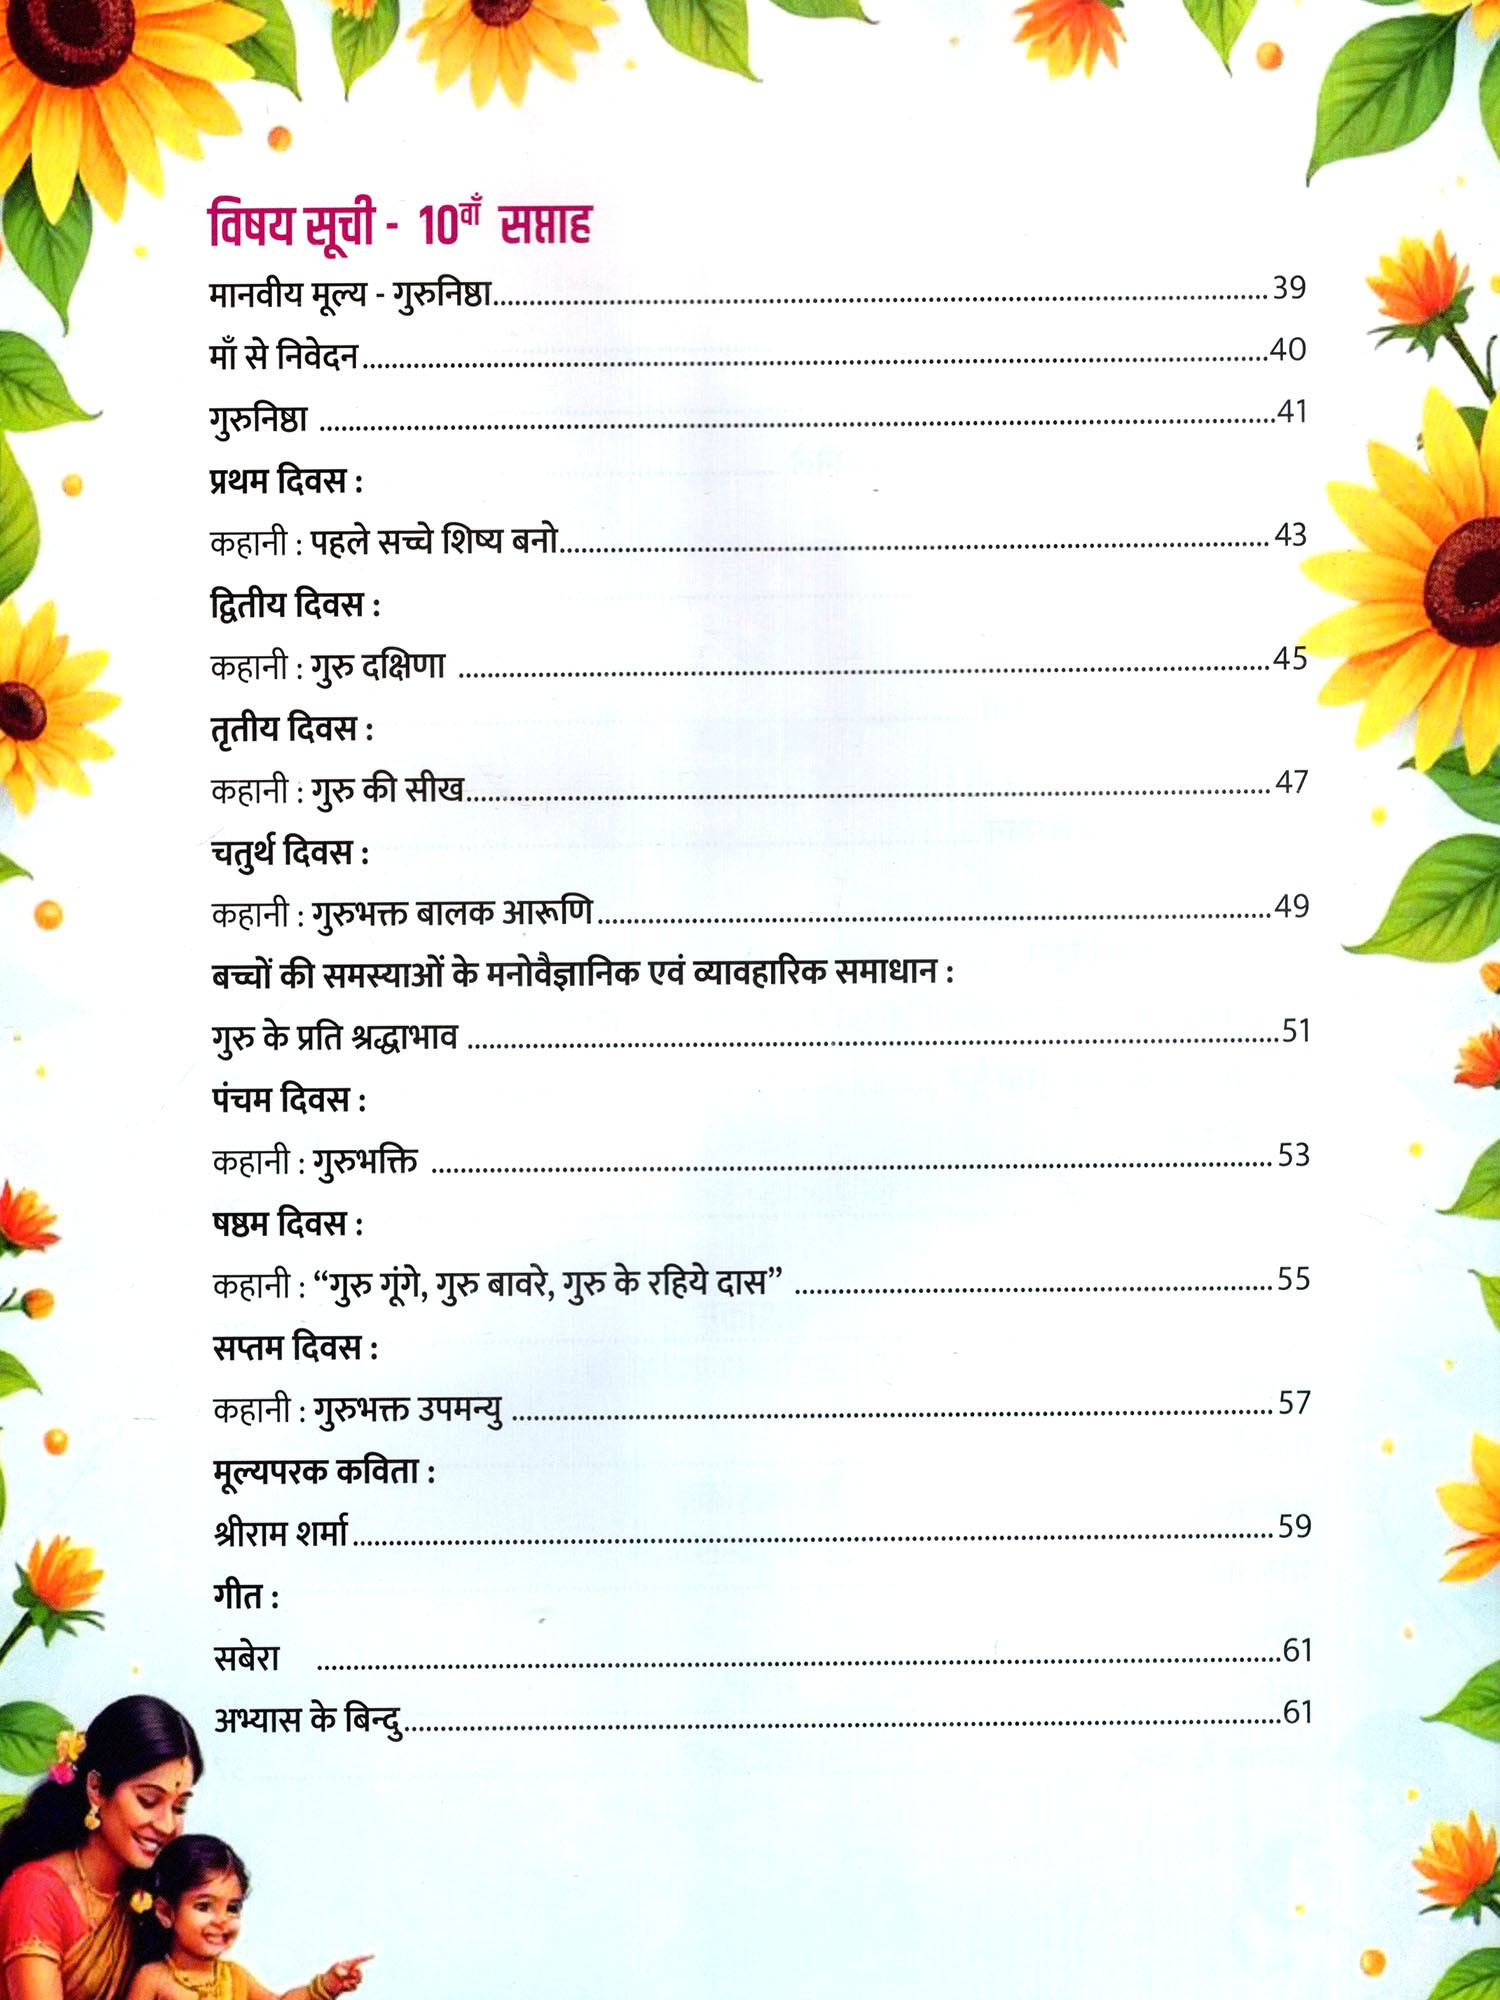 विषय सूची - 10वाँ सप्ताह
मानवीय मूल्य - गुरुनिष्ठा.......... 39
माँ से निवेदन.......... 40
गुरुनिष्ठा .......... 41
प्रथम दिवस :
कहानी : पहले सच्चे शिष्य बनो.......... 43
द्वितीय दिवस :
कहानी : गुरु दक्षिणा .......... 45
तृतीय दिवस :
कहानी : गुरु की सीख.......... 47
चतुर्थ दिवस :
कहानी : गुरुभक्त बालक आरूणि.......... 49
बच्चों की समस्याओं के मनोवैज्ञानिक एवं व्यावहारिक समाधान :
गुरु के प्रति श्रद्धाभाव .......... 51
पंचम दिवस :
कहानी : गुरुभक्ति .......... 53
षष्ठम दिवस :
कहानी : “गुरु गूंगे, गुरु बावरे, गुरु के रहिये दास” .......... 55
सप्तम दिवस :
कहानी : गुरुभक्त उपमन्यु .......... 57
मूल्यपरक कविता :
श्रीराम शर्मा.......... 59
गीत :
सबेरा .......... 61
अभ्यास के बिन्दु.......... 61